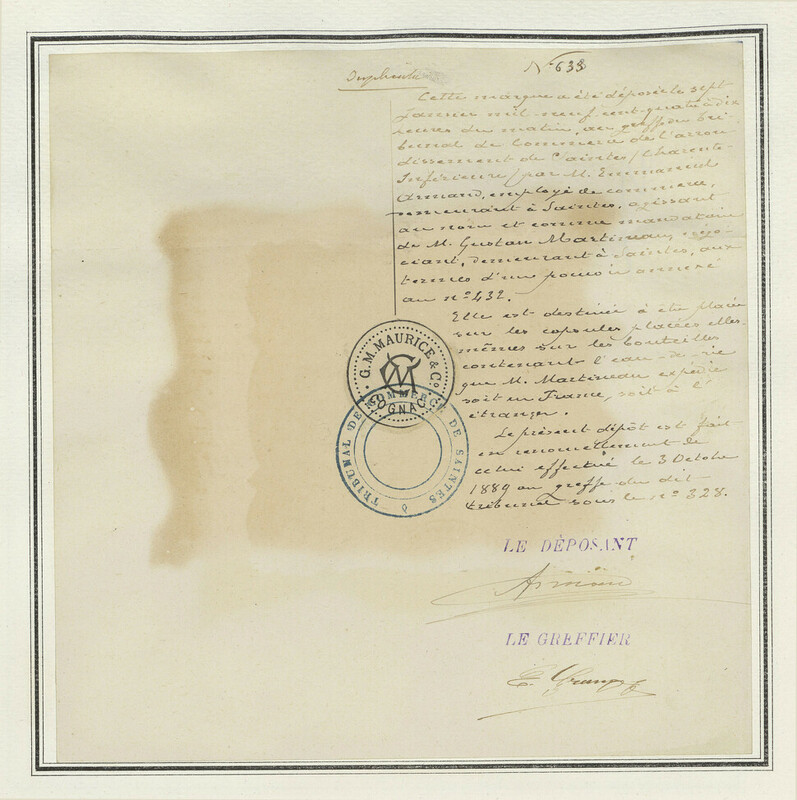 Duplicata
N° 638
Cette marque a été déposée le sept
Janvier mil neuf cent quatre à dix
heures du matin, au greffe du Tri-
bunal de Commerce de l'arron
dissement de Saintes (Charente-
Inférieure) par M. Emmanuel
Armand, employé de commerce,
demeurant à Saintes, agissant
au nom et comme mandataire
de M. Gustave Martineau, négo-
ciant, demeurant à Saintes, aux
termes d'un pouvoir annexé
au n° 432.
Elle est destinée à être placée
sur les capsules placées elles-
mêmes sur les bouteilles
contenant l'eau-de-vie
que M. Martineau expédie
soit en France, soit à l'
étranger.
Le présent dépôt est fait
en renouvellement de
celui effectué le 3 Octobre
1889 au greffe du dit
tribunal sous le n° 328.
G. M. MAURICE & Co
COGNAC
TRIBUNAL DE COMMERCE DE SAINTES
LE DÉPOSANT
LE GREFFIER